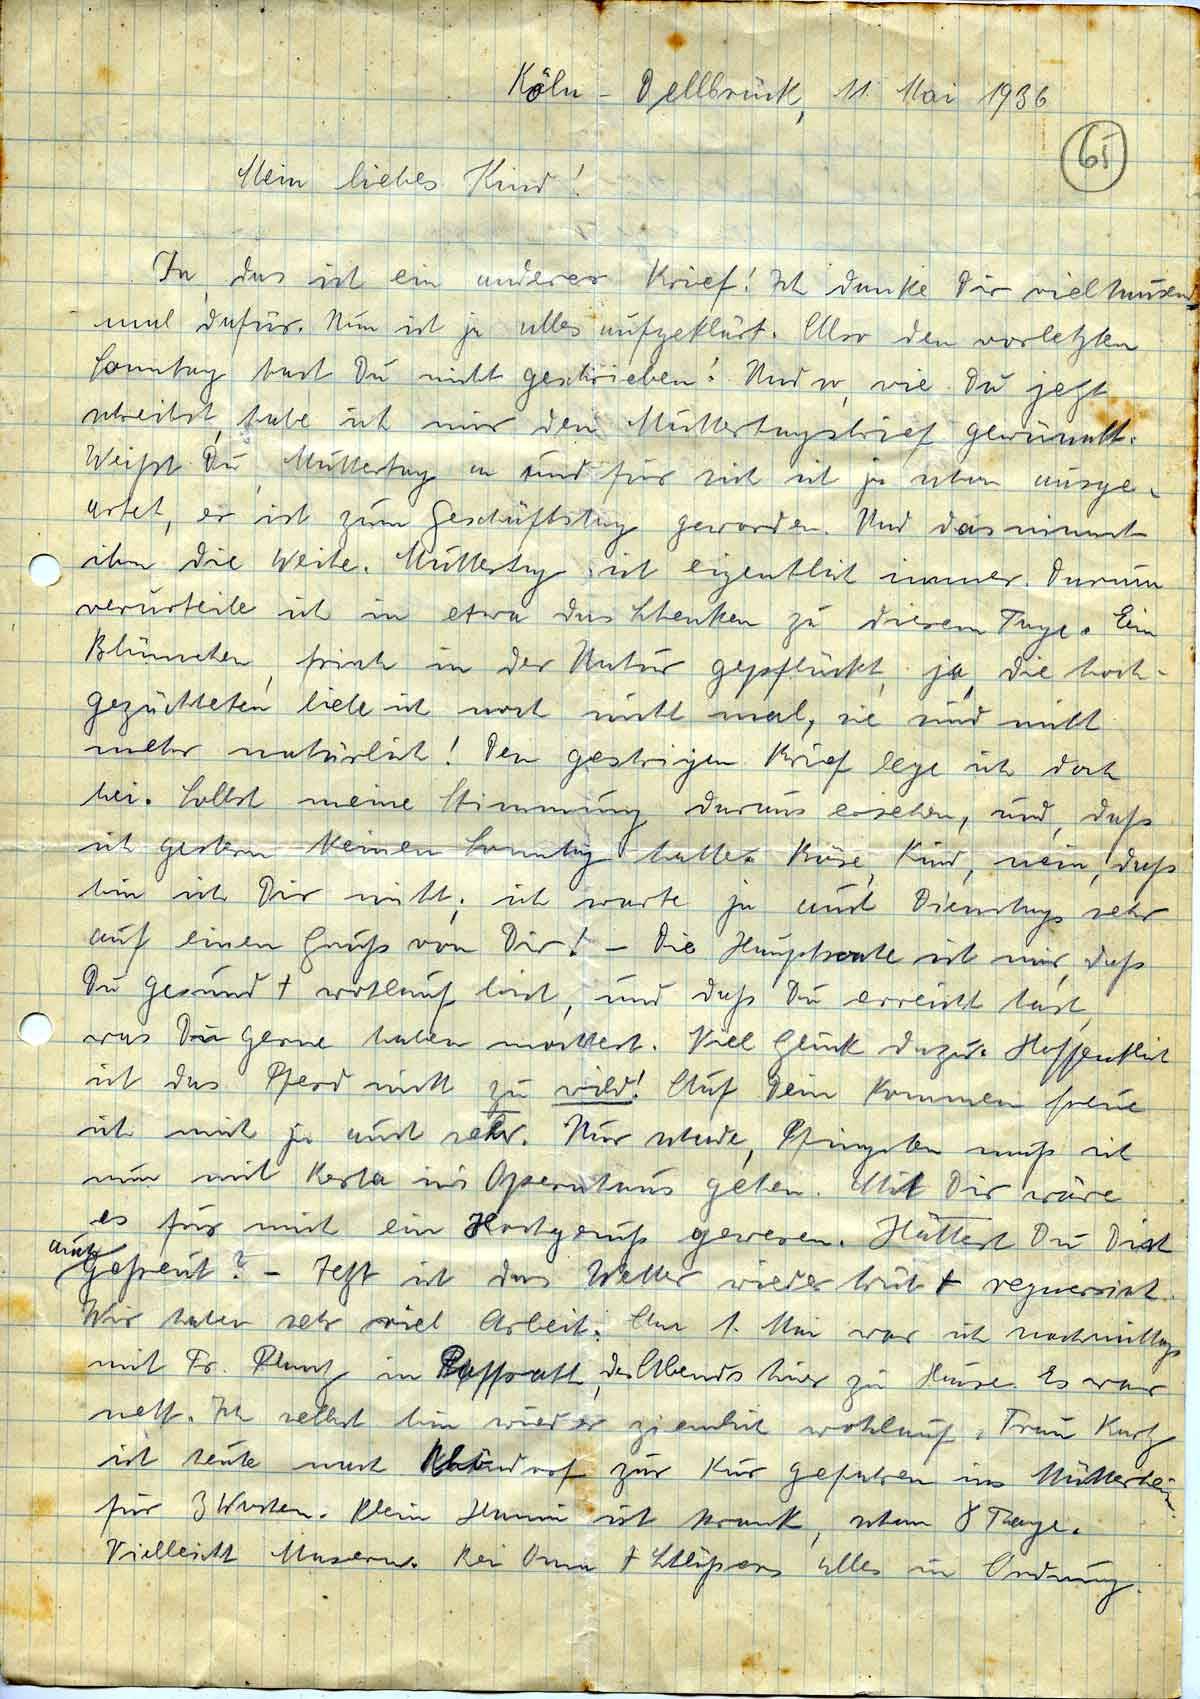 Köln - Dellbrück, 11. Mai 1936
61
Mein liebes Kind!
Ja, das ist ein anderer Brief! Ich danke Dir vieltausend
mal dafür. Nun ist ja alles aufgeklärt. Also den vorletzten
Sonntag hast Du nicht geschrieben! Und so, wie Du jetzt
schreibst, habe ich mir den Muttertagsbrief gewünscht.
Weißt Du, Muttertag an und für sich ist ja schon ausge-
artet, er ist zum Geschäftstag geworden. Und das nimmt
ihm die Weihe. Muttertag ist eigentlich immer. Darum
verurteile ich in etwa das Schenken zu diesem Tage. Ein
Blümchen, frisch in der Natur gepflückt, ja, die hoch-
gezüchteten liebe ich noch nicht mal, sie sind nicht
mehr natürlich! Den gestrigen Brief lege ich doch
bei. Sollst meine Stimmung daraus ersehen, und, daß
ich gestern keinen Sonntag hatte. Böse, Kind, nein, daß
bin ich Dir nicht, ich warte ja auch Dienstags sehr
auf einen Gruß von Dir! - Die Hauptsache ist mir, daß
Du gesund + wohlauf bist, und daß Du erreicht hast,
was Du gerne haben möchtest. Viel Glück dazu. Hoffentlich
ist das Pferd nicht zu wild! Auf Dein Kommen freue
ich mich ja auch sehr. Nur schade, Pfingsten muß ich
nun mit Berta ins Opernhaus gehen. Mit Dir wäre
es für mich ein Hochgenuß gewesen. Hättest Du Dich
auch gefreut? - Jetzt ist das Wetter wieder trüb + regnerisch.
Wir haben sehr viel Arbeit. Am 1. Mai war ich nachmittags
mit Fr. in Refrath, des Abends hier zu Hause. Es war
nett. Ich selbst bin wieder ziemlich wohlauf. Frau Kurtz
ist heute nach zur Kur gefahren ins Mütterheim
für 3 Wochen. Klein Hanni ist krank, schon 8 Tage.
Vielleicht Masern. Bei Oma + alles in Ordnung.